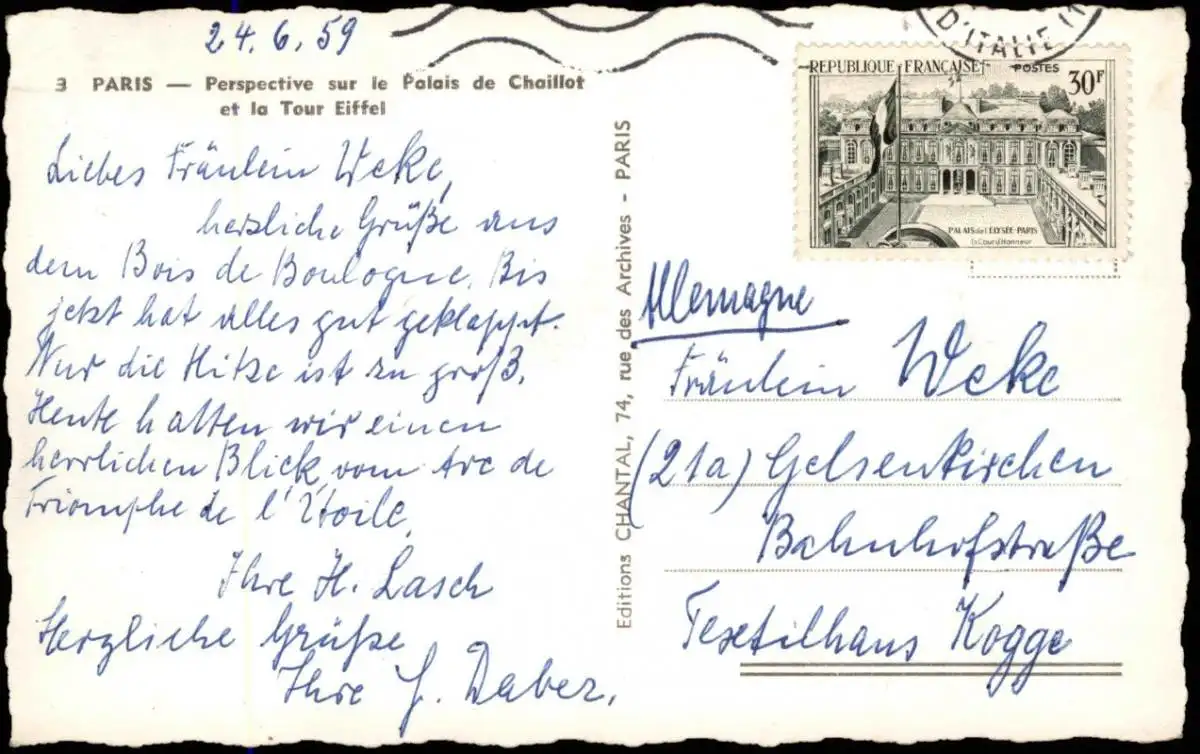 24.6.59
3 PARIS — Perspective sur le Palais de Chaillot
et la Tour Eiffel
Liebes Fräulein Weke,
herzliche Grüße aus
dem Bois de Boulogne. Bis
jetzt hat alles gut geklappt.
Nur die Hitze ist zu groß.
Heute hatten wir einen
herrlichen Blick vom Arc de
Triomphe de l'Etoile.
Ihre H. Lasch
Herzliche Grüße
Ihre G. Daber.
Editions CHANTAL, 74, rue des Archives - PARIS
D'ITALIE (1
REPUBLIQUE FRANÇAISE POSTES
30F
PALAIS de l'ELYSÉE-PARIS
La Cour d'Honneur
Allemagne
Fräulein Weke
(21a) Gelsenkirchen
Bahnhofstraße
Textilhaus Kogge